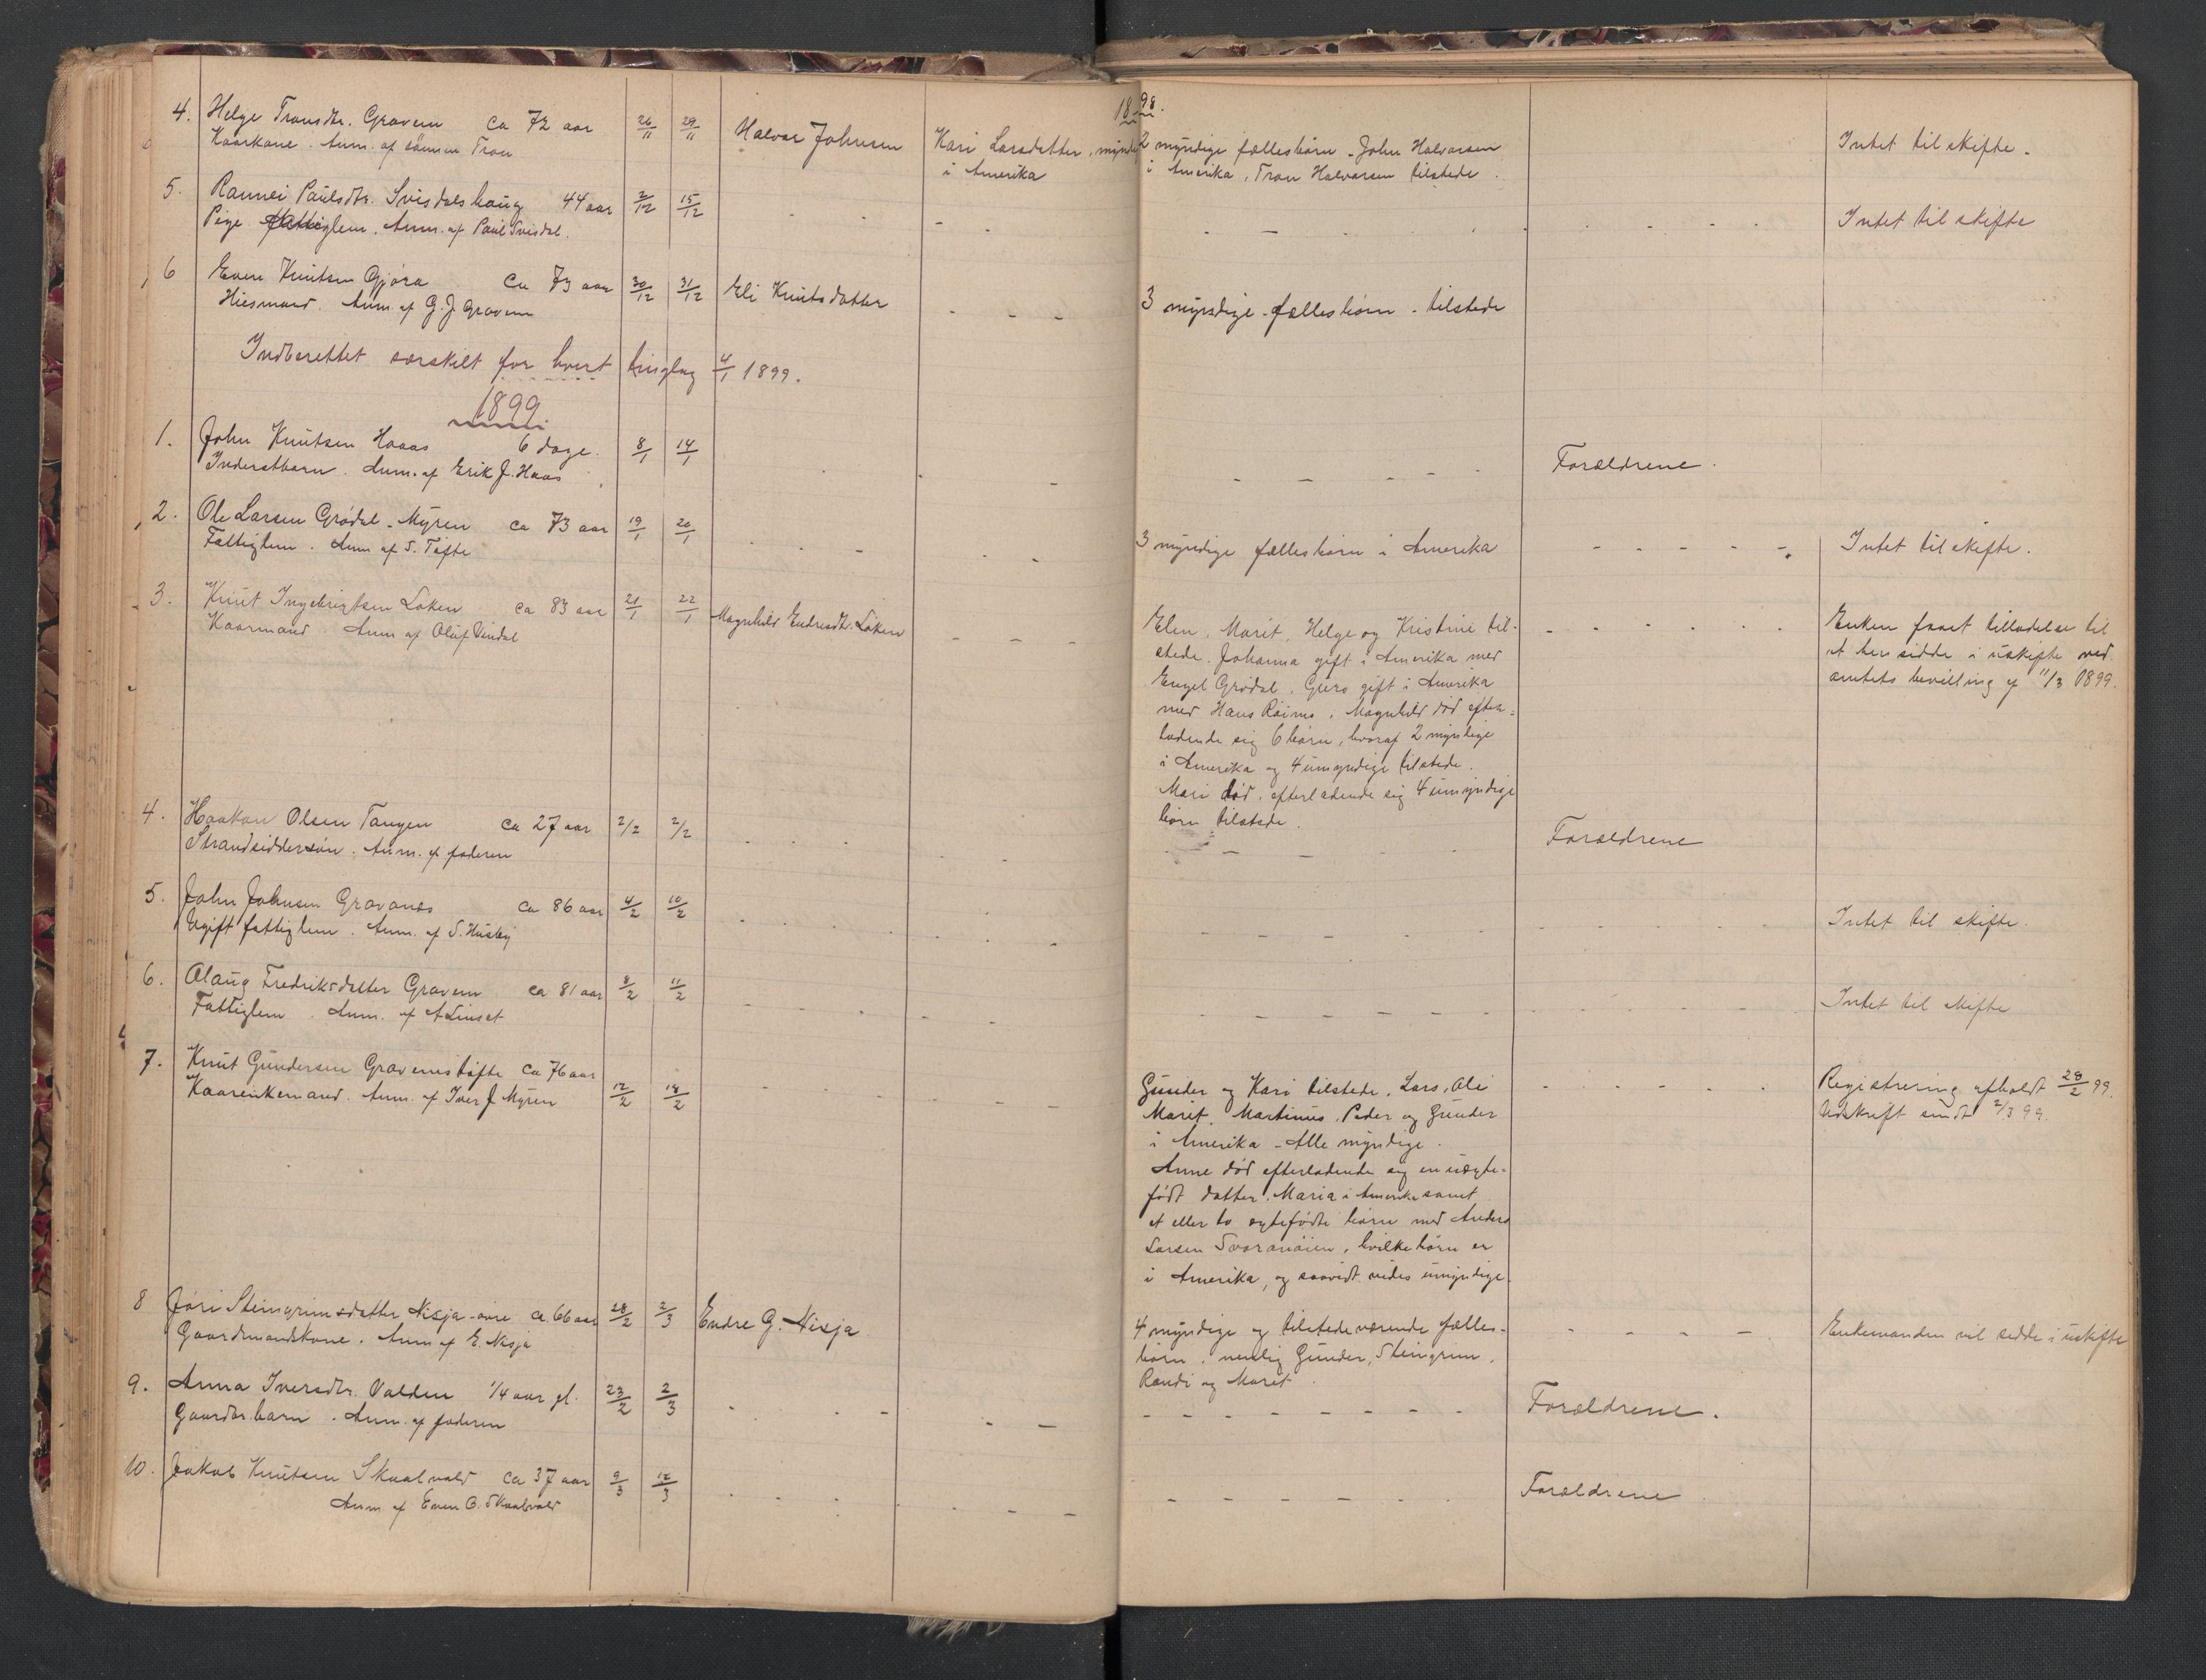 1898.
4. Helge Tronsdtr. Gravem ca 72 aar 26/11 29/11 Halvor Johnsen Kari Larsdatter, myndig 2 myndige fællesbørn - John Halvorsen Intet til skifte.
Kaarkone. Anm. af sønnen Tron i Amerika i Amerika, Tron Halvorsen tilstede.
5. Rannei Paulsdtr. Svisdalshaug 44 aar 2/12 15/12 Intet til skifte
Pige Fattiglem. Anm. af Paul Svisdal.
6 Even Knutsen Gjøra ca 73 aar 30/12 31/12 Eli Knutsdatter 3 myndige fællesbørn - tilstede
Huusmand. Anm. af G. J. Gravem
Indberettet særskilt for hvert tinglag 4/1 1899.
1899
1. John Knutsen Haaas 6 dage. 8/1 14/1 Forældrene.
Inderstbarn. Anm. af Erik J. Haas
2. Ole Larsen Grødal-Myren ca 73 aar 19/1 20/1 3 myndige fællesbørn i Amerika Intet til skifte.
Fattiglem. Anm af S. Tofte
3. Knut Ingebrigtsen Løken ca 83 aar 21/1 22/1 Magnhild Endresdtr. Løken
Kaarmand. Anm af Oluf Vindal
Elen, Marit, Helge og Kristine til-
stede. Johanna gift i Amerika med
Engel Grødal, Guro gift i Amerika
med Hans , Magnhild død efter-
ladende sig 6 børn, hvoraf 2 myndige
i Amerika og 4 umyndige tilstede.
Mari død, efterladende sig 4 umyndige
børn tilstede.
Enken faaet tilladelse til
at hensidde i uskifte ved
amtets bevilling af 11/3 1899.
4. Haakon Olsen Tangen ca 27 aar 2/2 2/2 Forældrene
Strandsiddersøn. Anm. af faderen
5. John Johnsen Gravanes ca 86 aar 4/2 10/2 Intet til skifte.
Ugift fattiglem. Anm. af S. Husby
6. Olaug Fredriksdatter Gravem ca 81 aar 8/2 11/2 Intet til skifte
Fattiglem. Anm. af A Linset
7. Knut Gundersen Gravemstøfte ca 76 aar
Kaarenkemand. Anm. af Iver J Myren 12/2 18/2
Gunder og Kari tilstede. Lars, Ole
Marit, Martinus, Peder og Gunder
i Amerika - Alle myndige.
Anne død efterladende sig en uægte-
født datter, Maria i Amerika samt
et eller to ægtefødte børn med Anders
Larsen Svorønøien, hvilke børn er
i Amerika, og saavidt vides umyndige.
Registrering afholdt 28/2 99.
Udskrift sendt 2/3 99.
8 Jøri Steingrimsdatter Nisja-øvre ca. 66 aar 28/2 2/3 Endre G. Nisja
Gaardmandskone. Anm af E. Nisja
4 myndige og tilstedeværende fælles-
børn, nemlig Gunder, Steingrim,
Randi og Marit.
Enkemanden vil sidde i uskifte
9. Anna Iversdtr. Valden 1/4 aar gl. 23/2 2/3 Forældrene.
Gaardbr. barn. Anm. af faderen
10. Jakob Knutsen Skaalvold ca 37 aar 9/3 12/3 Forældrene
Anm. af Even O. Skaalvold